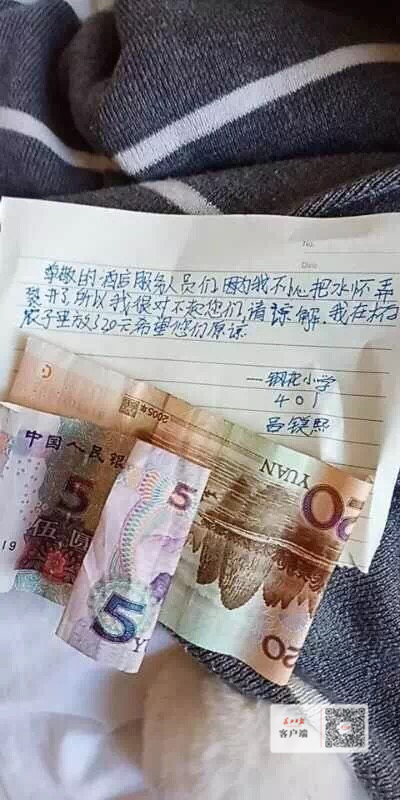 No.
Date
尊敬的酒店服务人员们,因为我不小心把水怀弄
裂开了所以我很对不起您们,请谅解,我在
子里放了20元希望您们原谅
—钢花小学
401
吕镁熙
2005年
YUAN
20
20
中国人民银
5
伍圆
19
5
5
Y
客户端